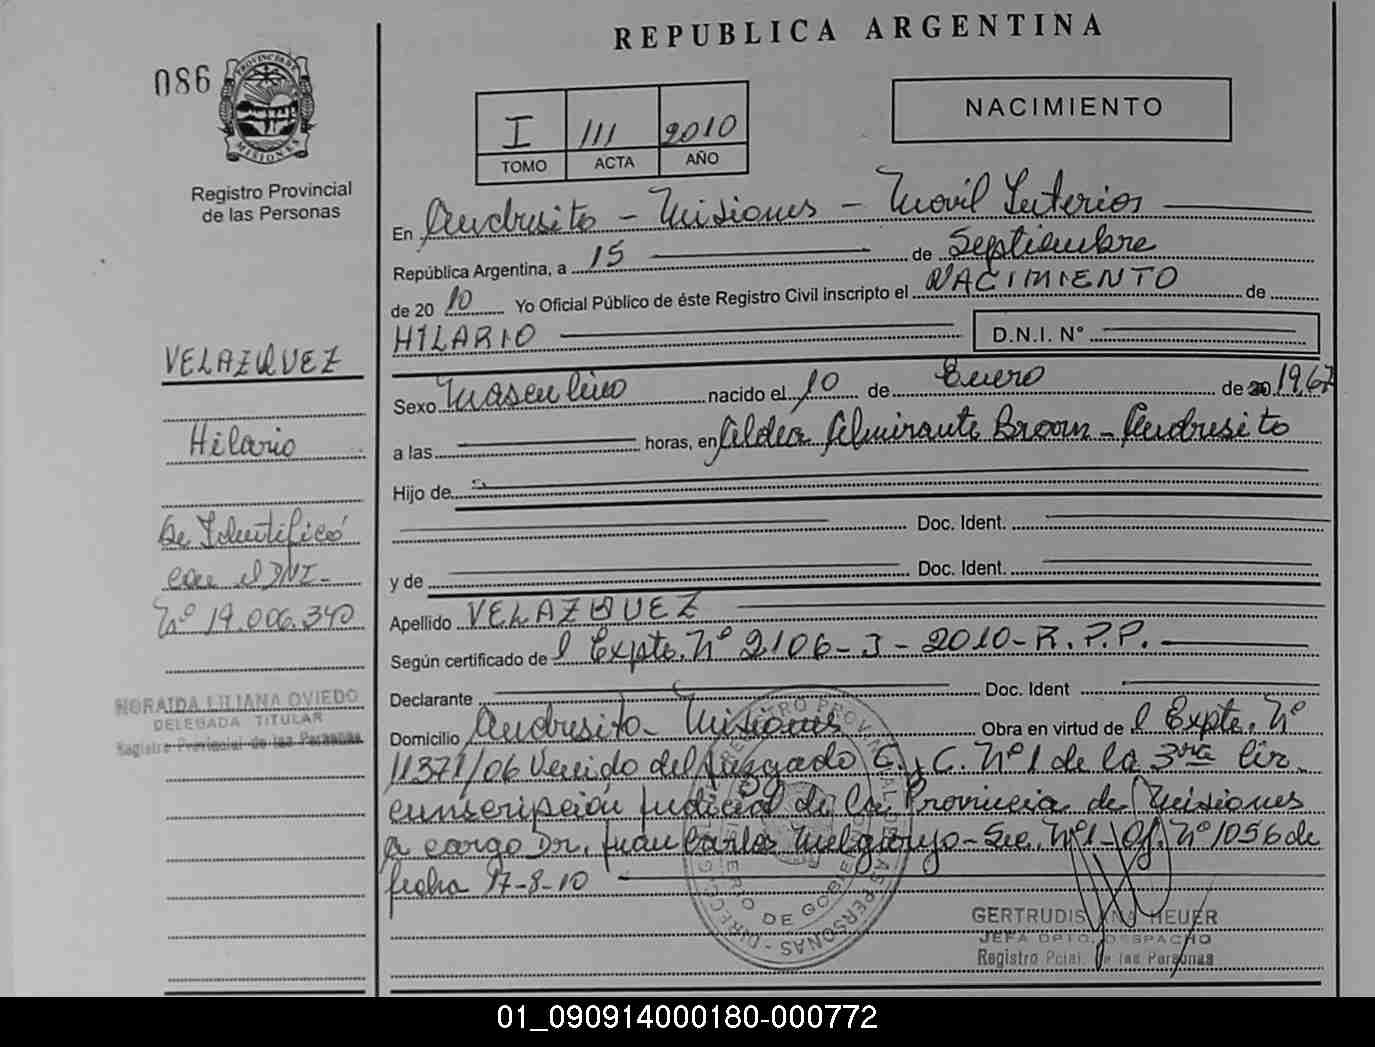 REPUBLICA ARGENTINA
086
PROVINCIA DE
MISIONES
Registro Provincial
de las Personas
I 111 2010
TOMO ACTA AÑO
NACIMIENTO
En Andresito - Misiones - Movil Interior
República Argentina, a 15 de Septiembre
de 20 10 Yo Oficial Público de éste Registro Civil inscripto el NACIMIENTO de
HILARIO D.N.I. N°
VELAZQUEZ
Sexo Masculino nacido el 10 de Enero de 20 1967
Hilario
a las horas, en Aldea Almirante Brown - Andresito
Hijo de
Doc. Ident.
Se Identificó
con el DNI-
Nº 19.006.340
y de Doc. Ident.
Apellido VELAZQUEZ
Según certificado de l Expte. Nº 2106-J-2010-R.P.P.
Declarante Doc. Ident
NORAIDA LILIANA OVIEDO
DELEGADA TITULAR
Registro Provincial de las Personas
Domicilio Andresito - Misiones Obra en virtud de l Expte. Nº
11371/06 Venido del Juzgado C. y C. Nº 1 de la 3ra Cir
cunscripción Judicial de la Provincia de Misiones
a cargo Dr. Juan Carlos - Sec. Nº 1 - Of. Nº 1056 de
fecha 17-8-10
GERTRUDIS ANA HEUER
JEFA DPTO. DESPACHO
Registro Pcial. de las Personas
01_090914000180-000772